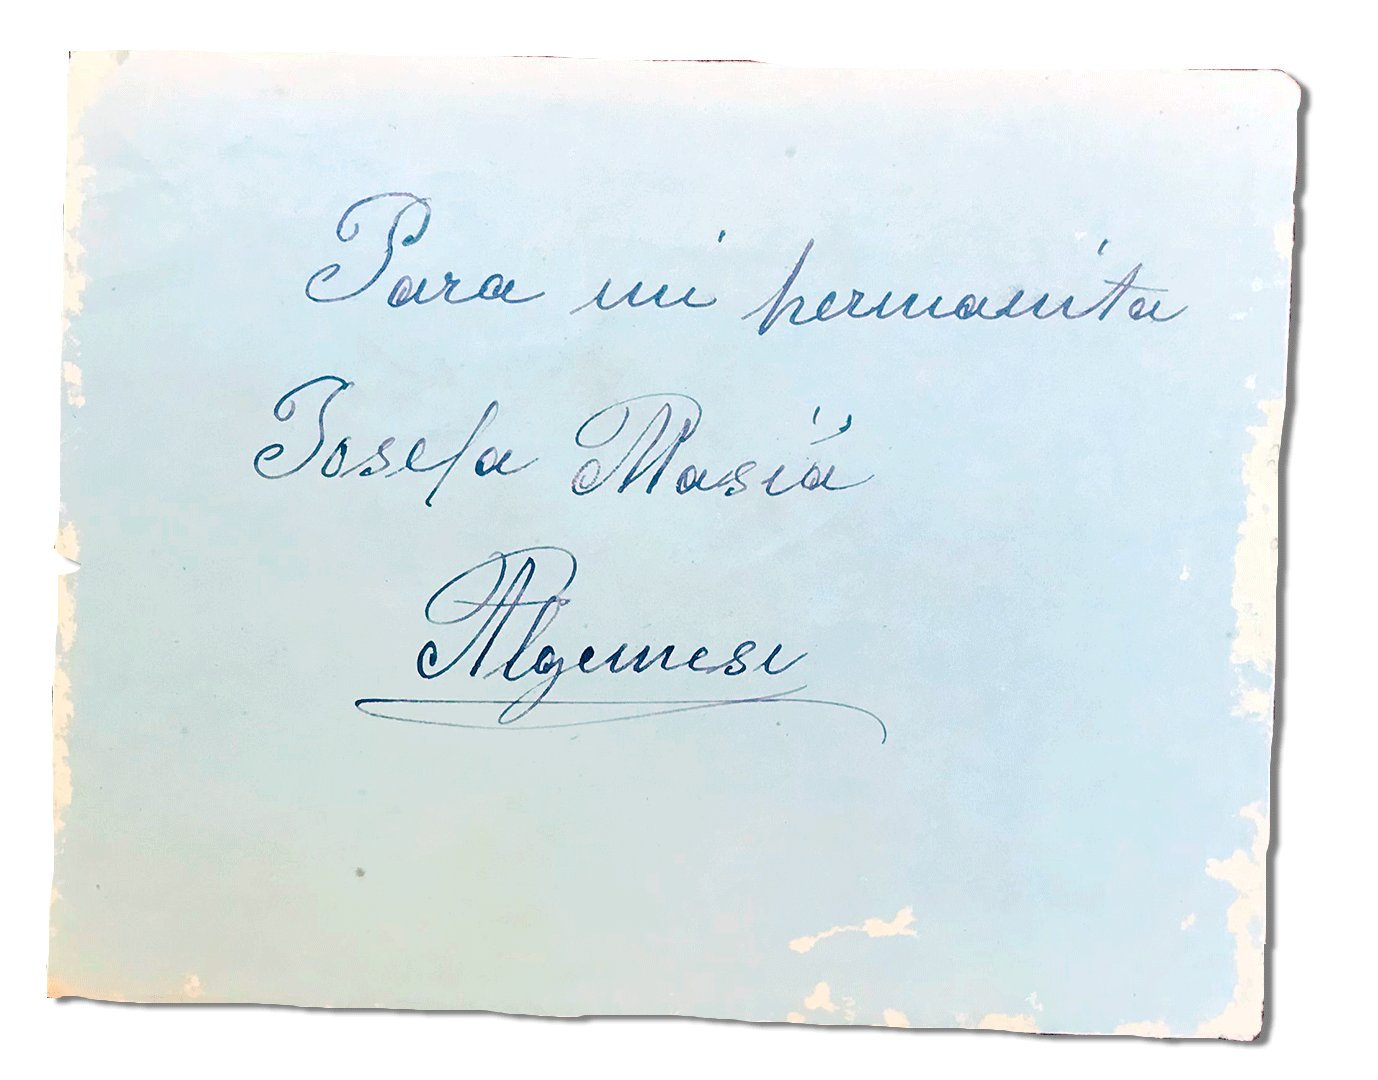 Para mi hermanita
Josefa Masiá
Algemesi